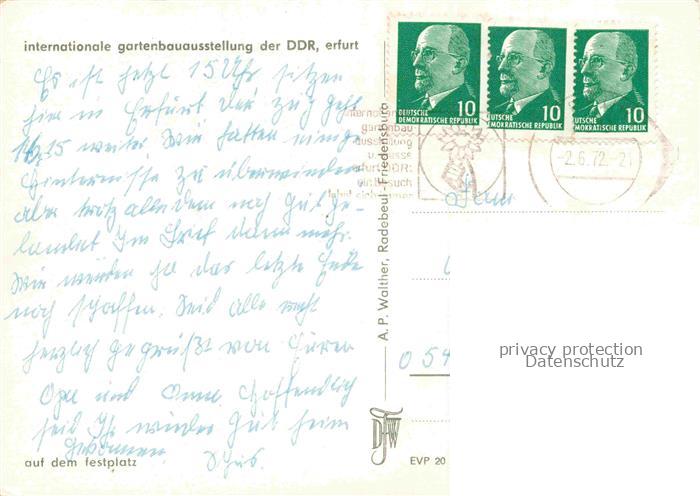 internationale gartenbauausstellung der DDR, erfurt
Es ist jetzt 15 Uhr sitzen
hier in Erfurt der Zug geht
15 weiter. Wir hatten einige
Hinternisse zu überwinden
aber trotz alledem noch Gut ge-
landet Im Brief dann mehr.
Wir werden ja das letzte Ende
noch schaffen. Seid alle recht
herzlich gegrüßt von Euren
Opa und Oma. Hoffendlich
seid Ihr wieder Gut heim
Gekommen.
auf dem festplatz
A. P. Walther, Radebeul-Friedensburg
DEUTSCHE
DEMOKRATISCHE REPUBLIK
10
DEUTSCHE
DEMOKRATISCHE REPUBLIK
10
DEUTSCHE
DEMOKRATISCHE REPUBLIK
10
gartenbau
ausstellung
erfurt DDR:
ein Besuch
lohnt sich immer
-2.6.72.-21
Fam
EVP 20
privacy protection
Datenschutz